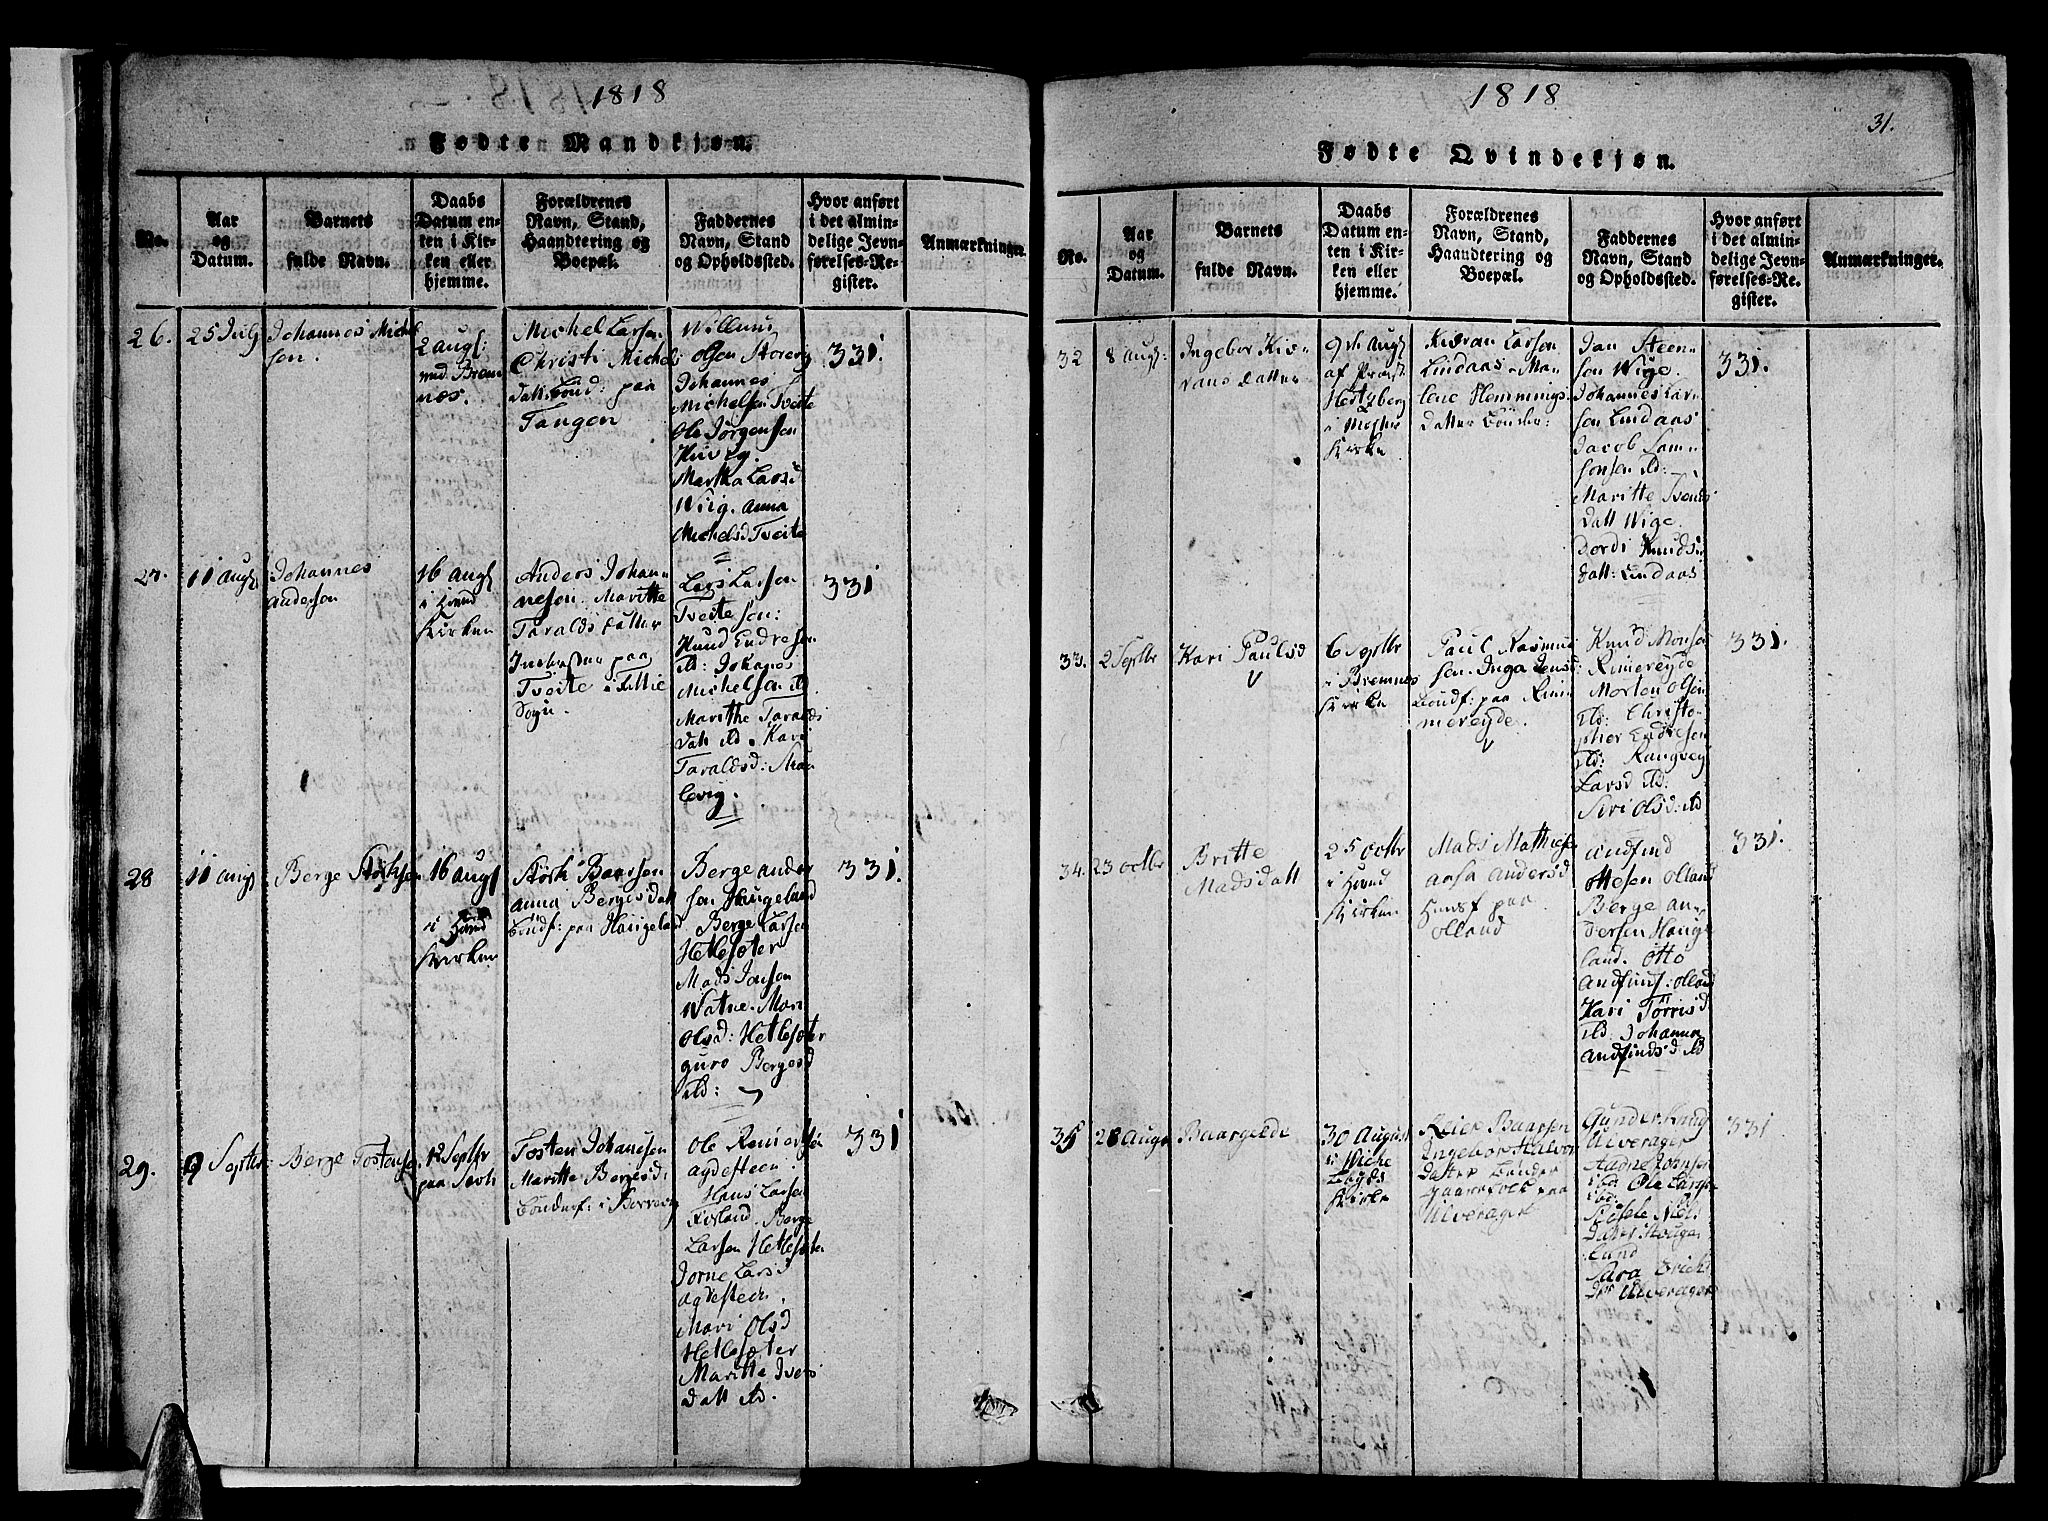 1818
Fødte Mandkjøn.
No.
Aar
og
Datum.
Barnets
fulde Navn.
Daabs
Datum en-
ten i Kir-
ken eller
hjemme.
Forældrenes
Navn, Stand,
Haandtering og
Boepæl.
Faddernes
Navn, Stand
og Opholdssted.
Hvor anført
i det almin-
delige Jevn-
førelses-Re-
gister.
Anmærkninger.
26.
25 July
Johannes Michel
sen.
2 augs:
ved Brem
næs.
Michel Larsen
Christi Michels
datt. bønd: paa
Tangen
Willum
olsen Storevig
Johannes
Michelsen Tveite
Ole Jørgensen
Martha Larsd
Wiig. Anna
Michelsd Tveite
331.
27.
11 augs
Johannes
Anderson
16 augs
i Hovud
Kirken
Anders Johan-
nesen. Maritte
Taralds datter
Inderster paa
Tveite i Fittie
Sogn.
Lars Larson
Tveite søn:
Knud Endresen
ibd: Johanes
Michelsen ibd
Marithe Taralds
datt ibd. Kari
Taraldsd:
331
28
11 augs
Berge Størksen
16 augs
i Hovud
Kirken
Størk Baarsen
Anna Berges Datt
bøndf: paa Haugeland
Berge ander
sen Haugeland
Berge Larsen
Hetlesæter
Mads Jonsen
Watne. Mari
olsd: Hetlesæter
guro Bergesd
ibd:
331.
29.
9 Septbr
Berge Tostensen
12 Septbr
Tosten Johanesen
Maritte Bergesd:
bønderf: i
Ole Reinertsen
agdesteen.
Hans Larsen
Berge
Larsen Hetlesæter
Jorne Larsd
agdesteen.
Mari Olsd
Hetlesæter
Maritte Ivers
datt ibd.
331
1818
31.
Fødte Qvindekjøn.
No.
Aar
og
Datum.
Barnets
fulde Navn.
Daabs
Datum en-
ten i Kir-
ken eller
hjemme.
Forældrenes
Navn, Stand,
Haandtering og
Boepæl.
Faddernes
Navn, Stand
og Opholdssted.
Hvor anført
i det almin-
delige Jevn-
førelses-Re-
gister.
Anmærkninger.
32
8 augs:
Ingebor Kiø-
rans datter
9de Augs
af Provst
Hertzberg
i Moster
Kirke
Kiøran Larsen
Lindaas. Ma-
lene Flemmings
datter bønder:
Jan Steen-
sen Wige.
Johannes Lar-
sen Lindaas
Jacob Sam-
sonsen ibd:
Maritte Svends
datt Wige.
Dordi Knuds
datt: Lindaas
331.
33.
2 Septbr
Kari Paulsd
6 Septbr
i Bremnes
Kirken
Paul Rasmus
sen. Inga Jensd:
bøndf: paa Rim
mereyde.
Knud Monsen
Rimereyde
Morten olsen
ibd: Christo-
pher Endresen
ibd: Rangvey
Larsd ibd:
Siri olsd: ibd
331.
34.
23 octbr
Britte
Madsdatt
25 octbr
i Hovud
Kirken
Mads Mathiesen
aasa Andersd
Huusf paa
olland
Andfind
ottesen olland
Berge An-
dersen Haug
land. Otto
Andfinds: olland
Kari Torrisd
ibd: Johanna
Andfinds'd ibd
331.
35
28 Augs
Baargilde
30 August
i Wiche
bygds
Kirke
Reier Baarsen
Ingebor Halvor
datter bønder
gaardfolk paa
Ulverager
Gunder Knud
Ulverager
Aadne Johnsen
ibd: Ole Larsen
ibd.
Sissele Niels
datter Houge
lund
Sara Erichs
dtr Ulverager
331